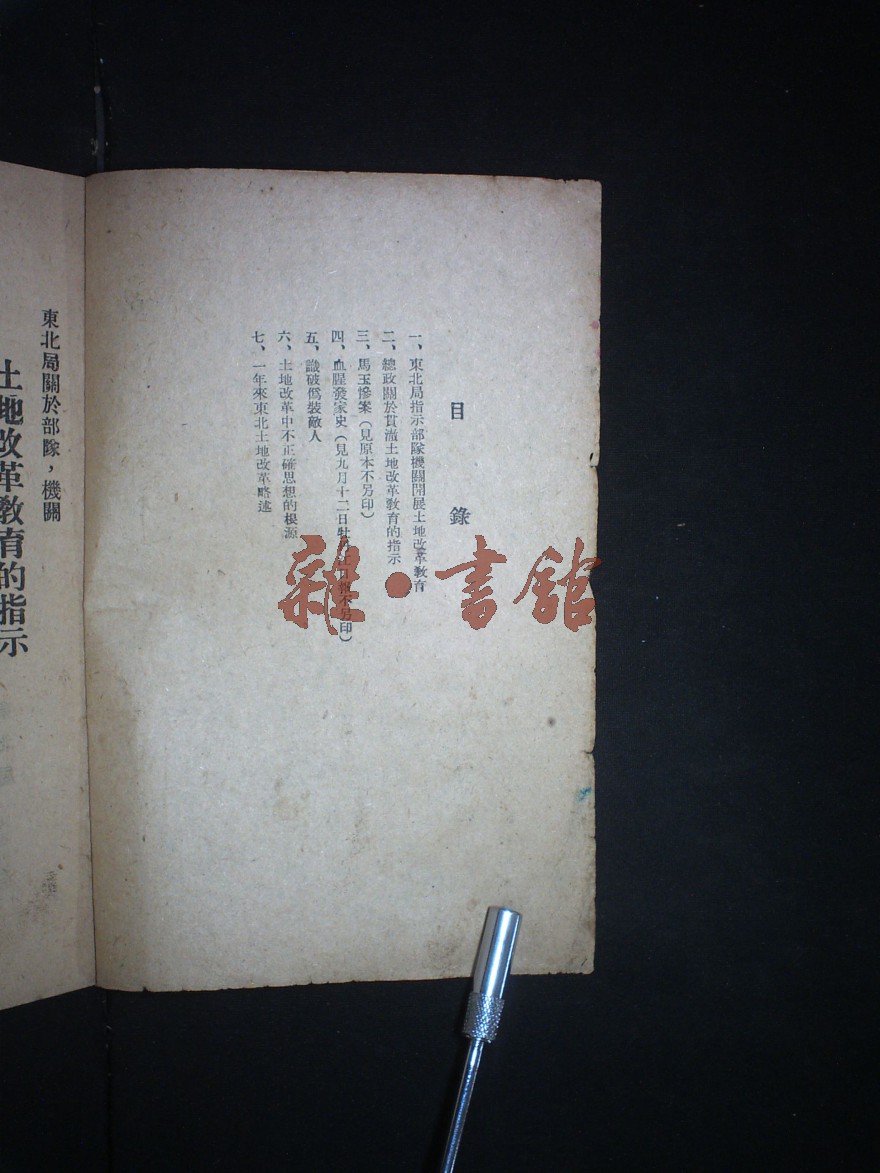 目錄
一、東北局指示部隊機關開展土地改革教育
二、總政關於貫澈土地改革教育的指示
三、馬玉慘案（見原本不另印）
四、血腥發家史（見九月十二日牡丹江日報不另印）
五、識破僞裝敵人
六、土地改革中不正確思想的根源
七、一年來東北土地改革略述
東北局關於部隊，機關
土地改革教育的指示
雜·書館